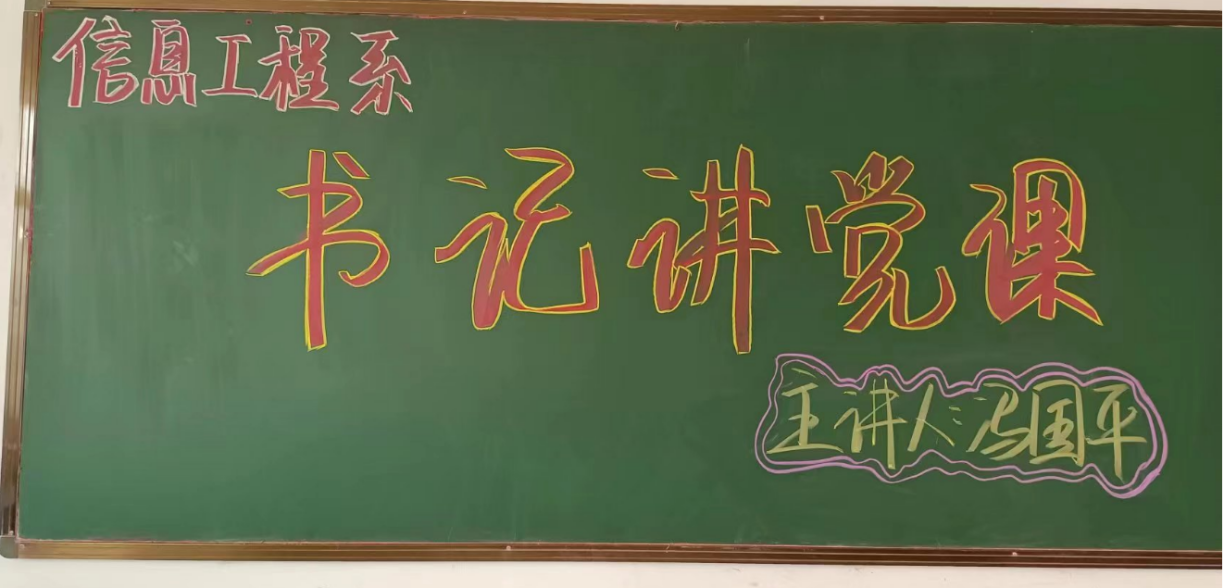 信息工程系
书记讲党课
主讲人:冯国平